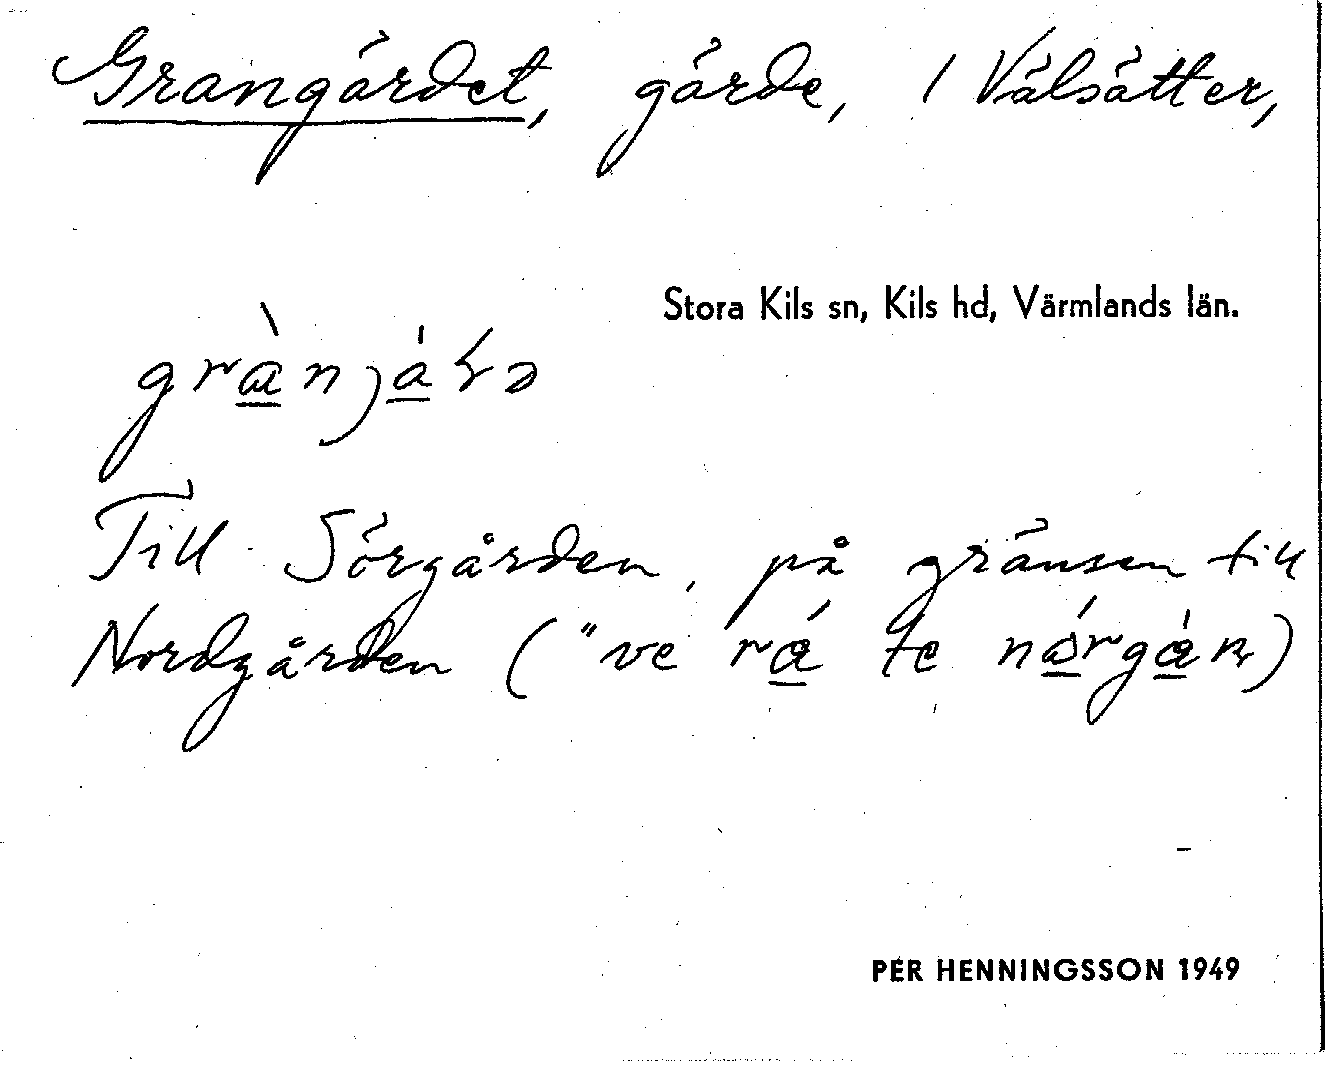 Grangärdet, gärde, / Välsätter,
Stora Kils sn, Kils hd, Värmlands län.
Till Sörgården, på gränsen till
Nordgården (" ve rá te
PER HENNINGSSON 1949